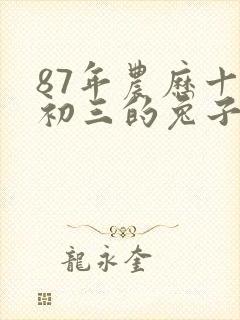 87年農歷十
初三的兔子
龍永奎